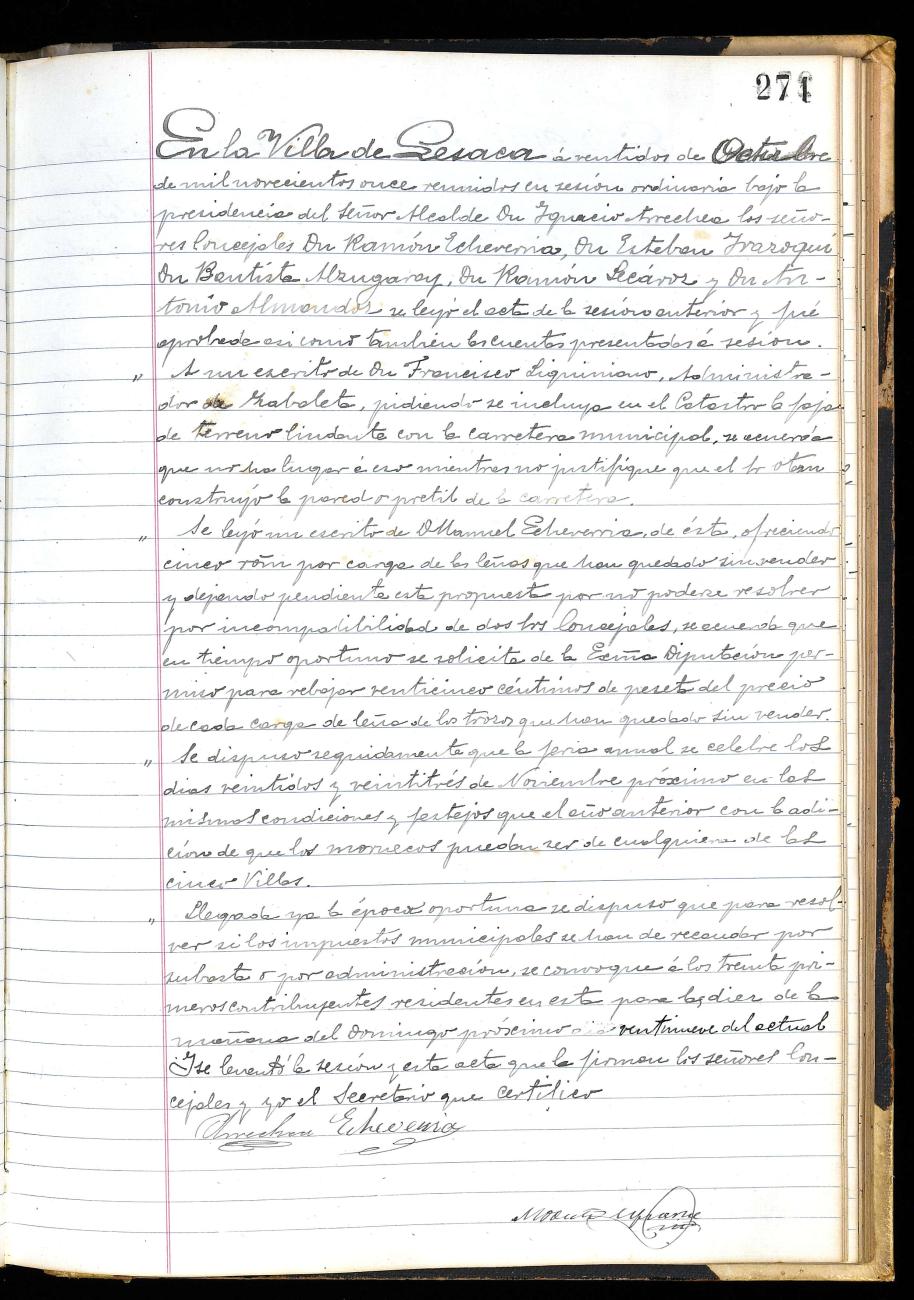 271
En la Villa de Lesaca á ventidos de Octubre
de mil novecientos once reunidos en sesión ordinaria bajo la
presidencia del Señor Alcalde Dn Ignacio Arrechea los seño-
res Concejales Dn Ramón Echeverria, Dn Esteban Irazoqui
Dn Bautista Alzugaray, Dn Ramón Lecároz y Dn An-
tonio Almandoz se leyó el acta de la sesión anterior y fué
aprobada asi como tambien las cuentas presentadas á sesion.
" A un escrito de Dn Francisco Liquiniano, Administra-
dor de Zabaleta, pidiendo se incluya en el Catastro la faja
de terreno lindante con la carretera municipal, se acuerda
que no ha lugar á eso mientras no justifique que el Sr
construyó la pared o pretil de la carretera.
" Se leyó un escrito de D Manuel Echeverria, de ésta, ofreciendo
cinco por carga de las leñas que han quedado sin vender
y dejando pendiente esta propuesta por no poderse resolver
por incompatibilidad de dos Srs Concejales, se acuerda que
en tiempo oportuno se solicite de la Exma Diputación per-
miso para rebajar venticinco céntimos de peseta del precio
de cada carga de leña de los trozos que han quedado sin vender.
" Se dispuso seguidamente que la feria anual se celebre los
dias veintidos y veintitrés de Noviembre próximo en las
mismas condiciones y festejos que el año anterior con la adi-
ción de que los moruecos puedan ser de cualquiera de las
cinco Villas.
" Llegada ya la época oportuna se dispuso que para resol-
ver si los impuestos municipales se han de recaudar por
subasta o por administración, se convoque á los treinta pri-
meros contribuyentes residentes en esta para las diez de la
mañana del Domingo próximo dia ventinueve del actual
Y se levantó la sesión y esta acta que la firman los señores Con-
cejales y yo el Secretario que certifico
Arrechea Echeverria